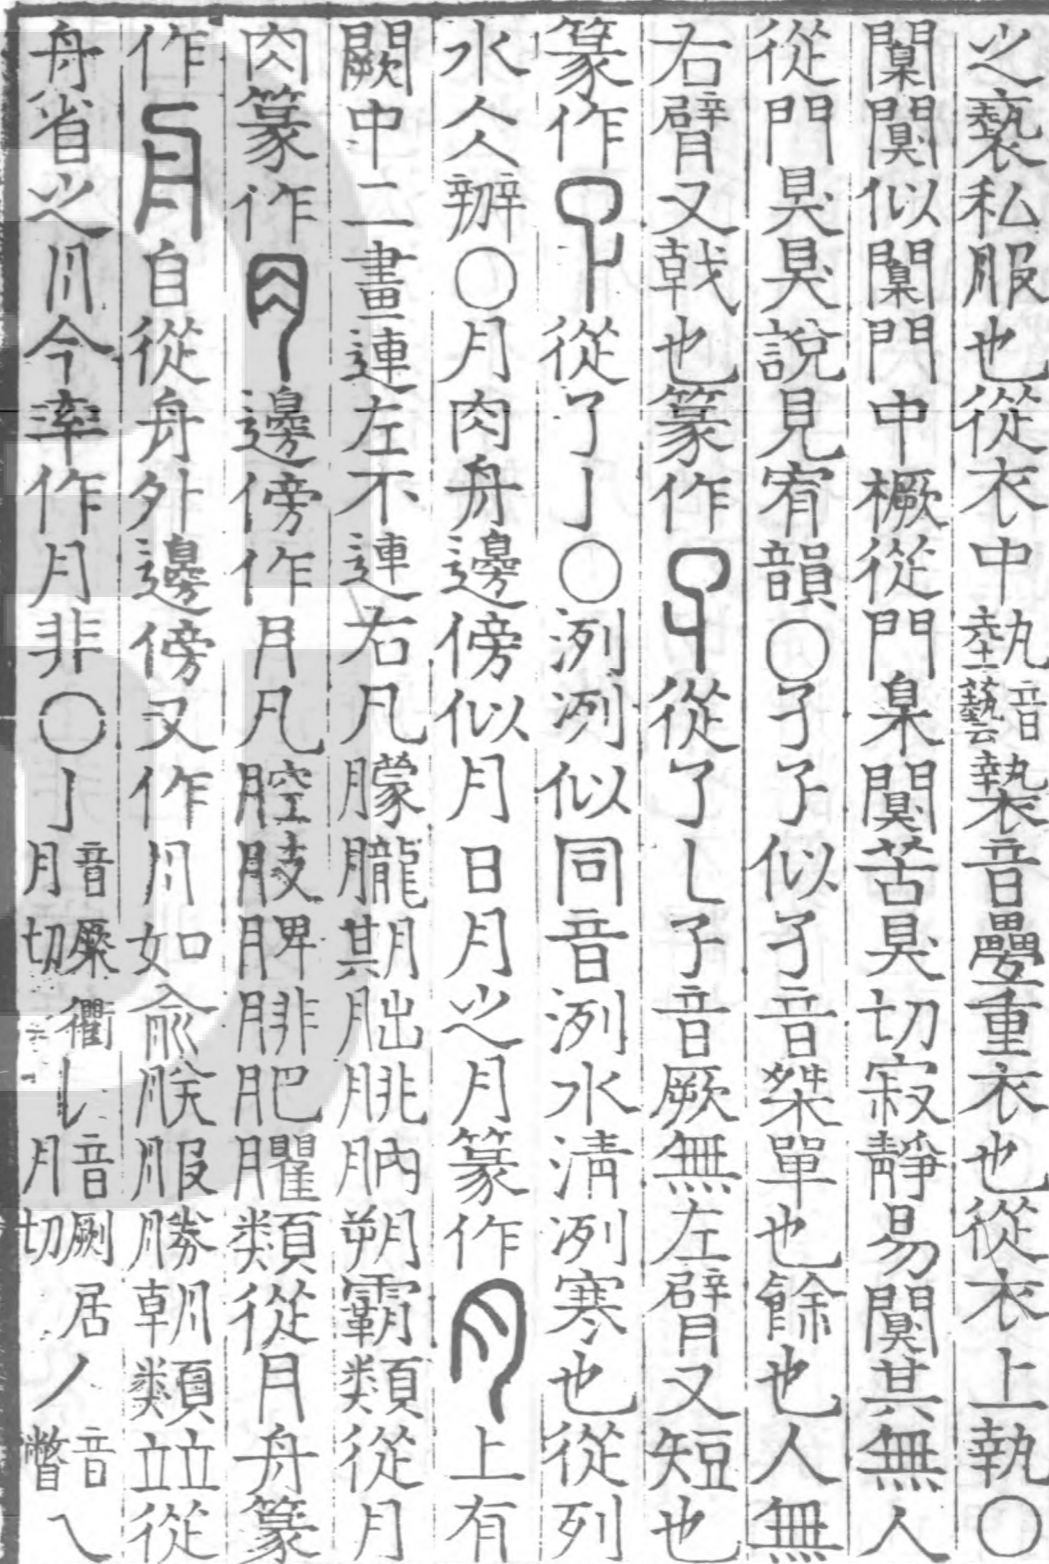 之褻私服也從衣中埶音藝褺音疊重衣也從衣上執〇
闑闃似闑門中橛從門臬闃苦狊切寂靜易闃其無人
從門狊狊說見宥韻〇孑孒似孑音桀單也餘也人無
右臂又戟也篆作從了乚孒音厥無左臂又短也
篆作從了亅〇洌冽似同音洌水清冽寒也從列
水仌辦〇月肉舟邊傍似月日月之月篆作上有
闕中二畫連左不連右凡朦朧期朏朓朒朔霸類從月
肉篆作邊傍作月凡腔肢脾腓肥臞類從月舟篆
作自從舟外邊傍又作如俞朕服勝朝類並從
舟省之今率作月非〇亅音橜衢月切𠄌音劂居月切丿音瞥乀